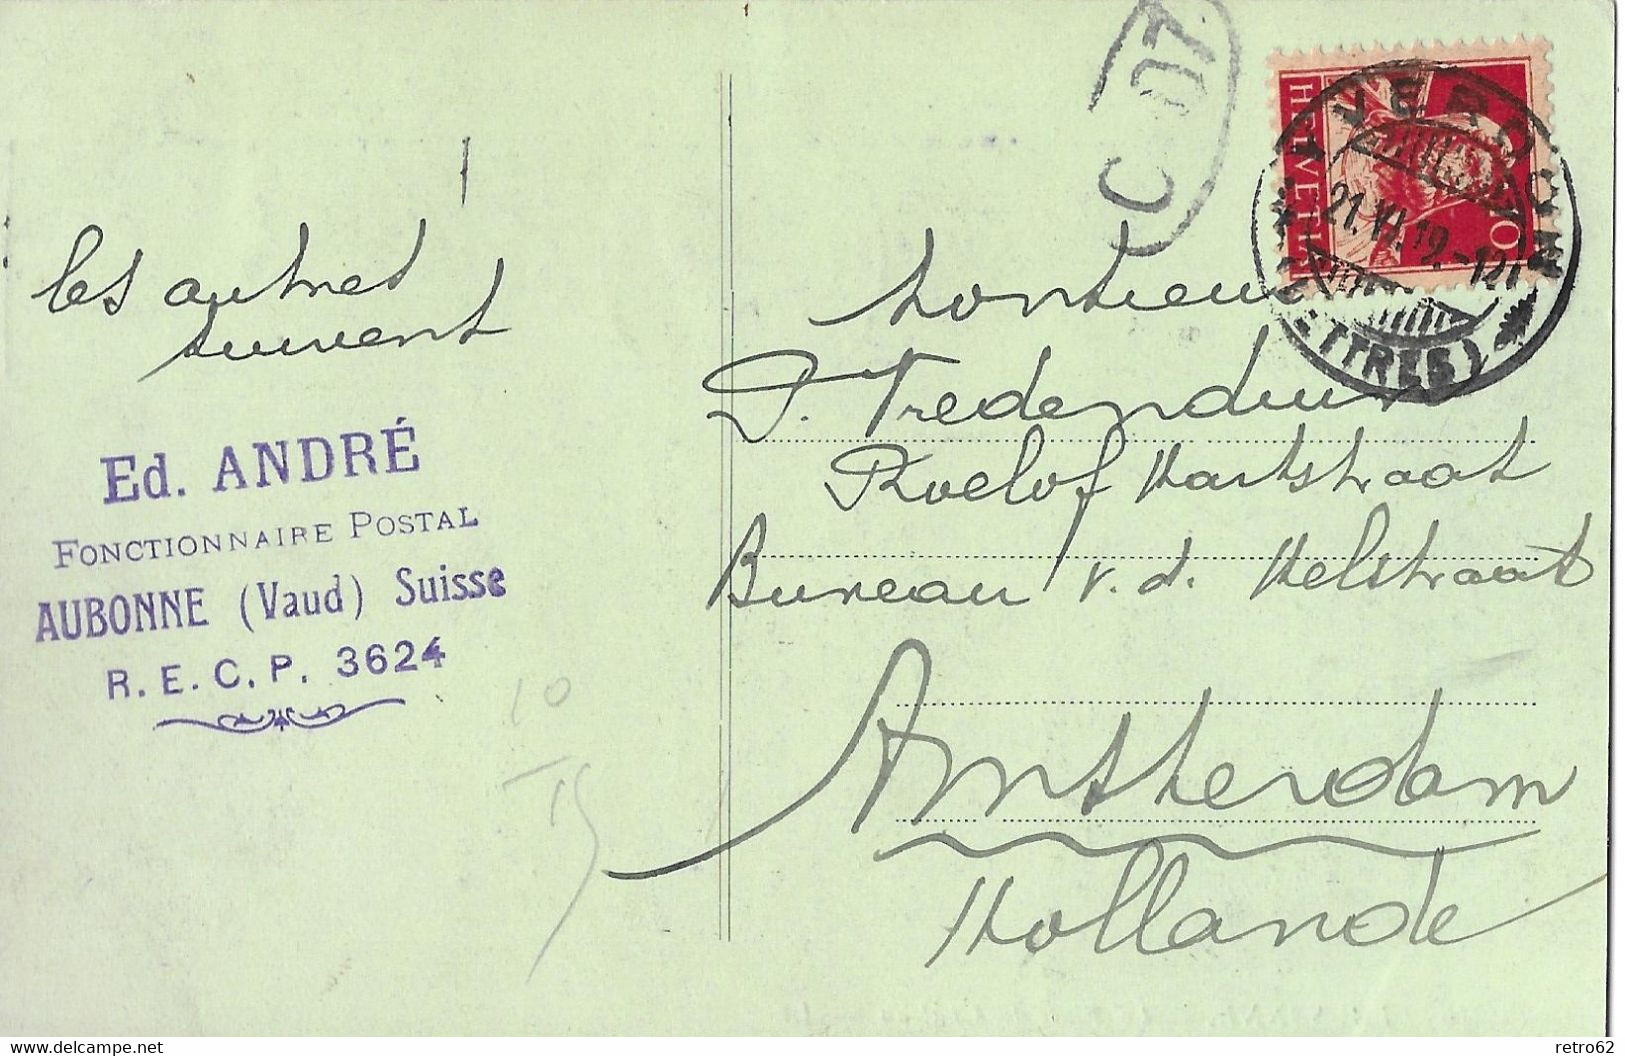 les autres
suivent
Ed. ANDRÉ
FONCTIONNAIRE POSTAL
AUBONNE (Vaud) Suisse
R. E. C. P. 3624
10
15
HELVETIA
10
YVERDON
21.VI.19.-12
(LETTRES)
Monsieur
Roelof Hartstraat
Bureau v. d. Helstraat
Amsterdam
Hollande
delcampe.net
retro62